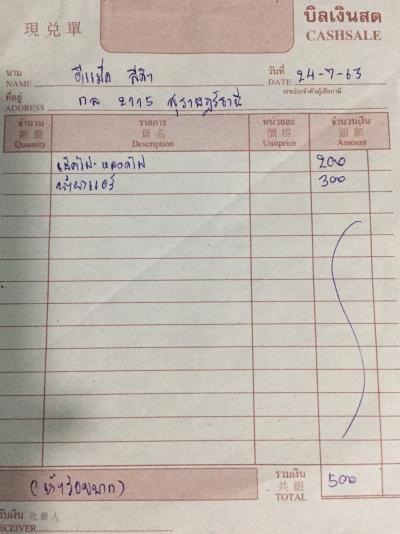 บิลเงินสด
現兌單 CASHSALE
นาม
NAME วันที่ 24-7-63
DATE
เลขประจำตัวผู้เสียภาษี
ที่อยู่ กล 2115 สุราษฎร์ธานี
ADDRESS
จำนวน รายการ หน่วยละ จำนวนเงิน
數量 貨名 價格 銀額
Quantity Description Unitprice Amount
หลอดไฟ 200
300
รวมเงิน
共銀 500
TOTAL
(ห้าร้อยบาท)
รับเงิน 收銀人
RECEIVER